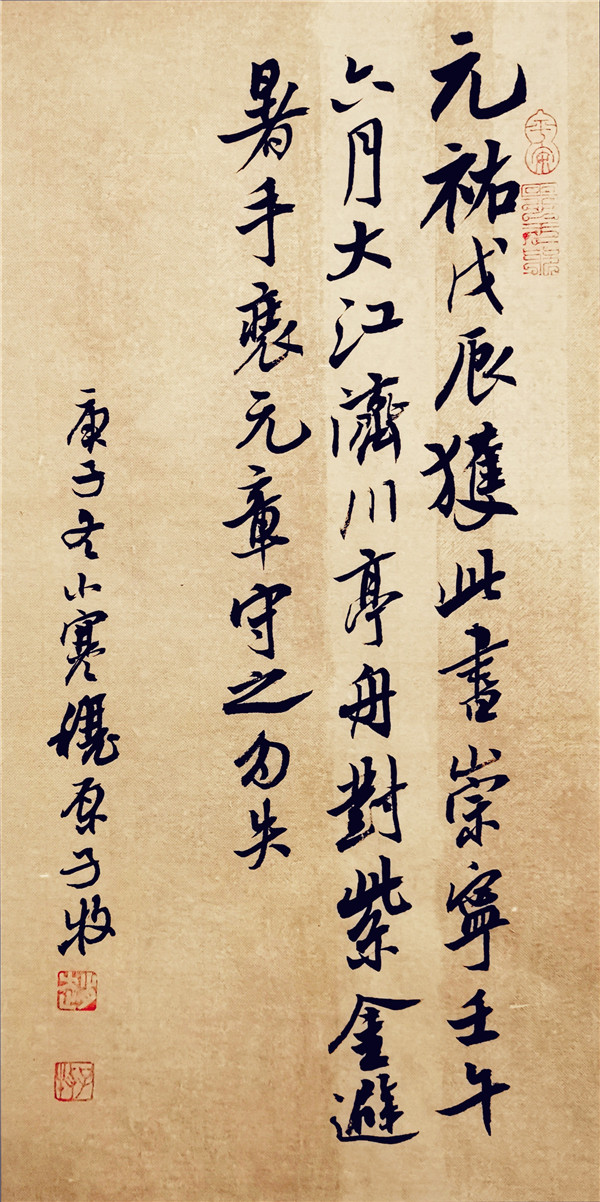 元祐戊辰獲此書崇寧壬午
六月大江濟川亭舟對紫金避
暑手裝元章守之勿失
庚子冬小寒穆原子牧